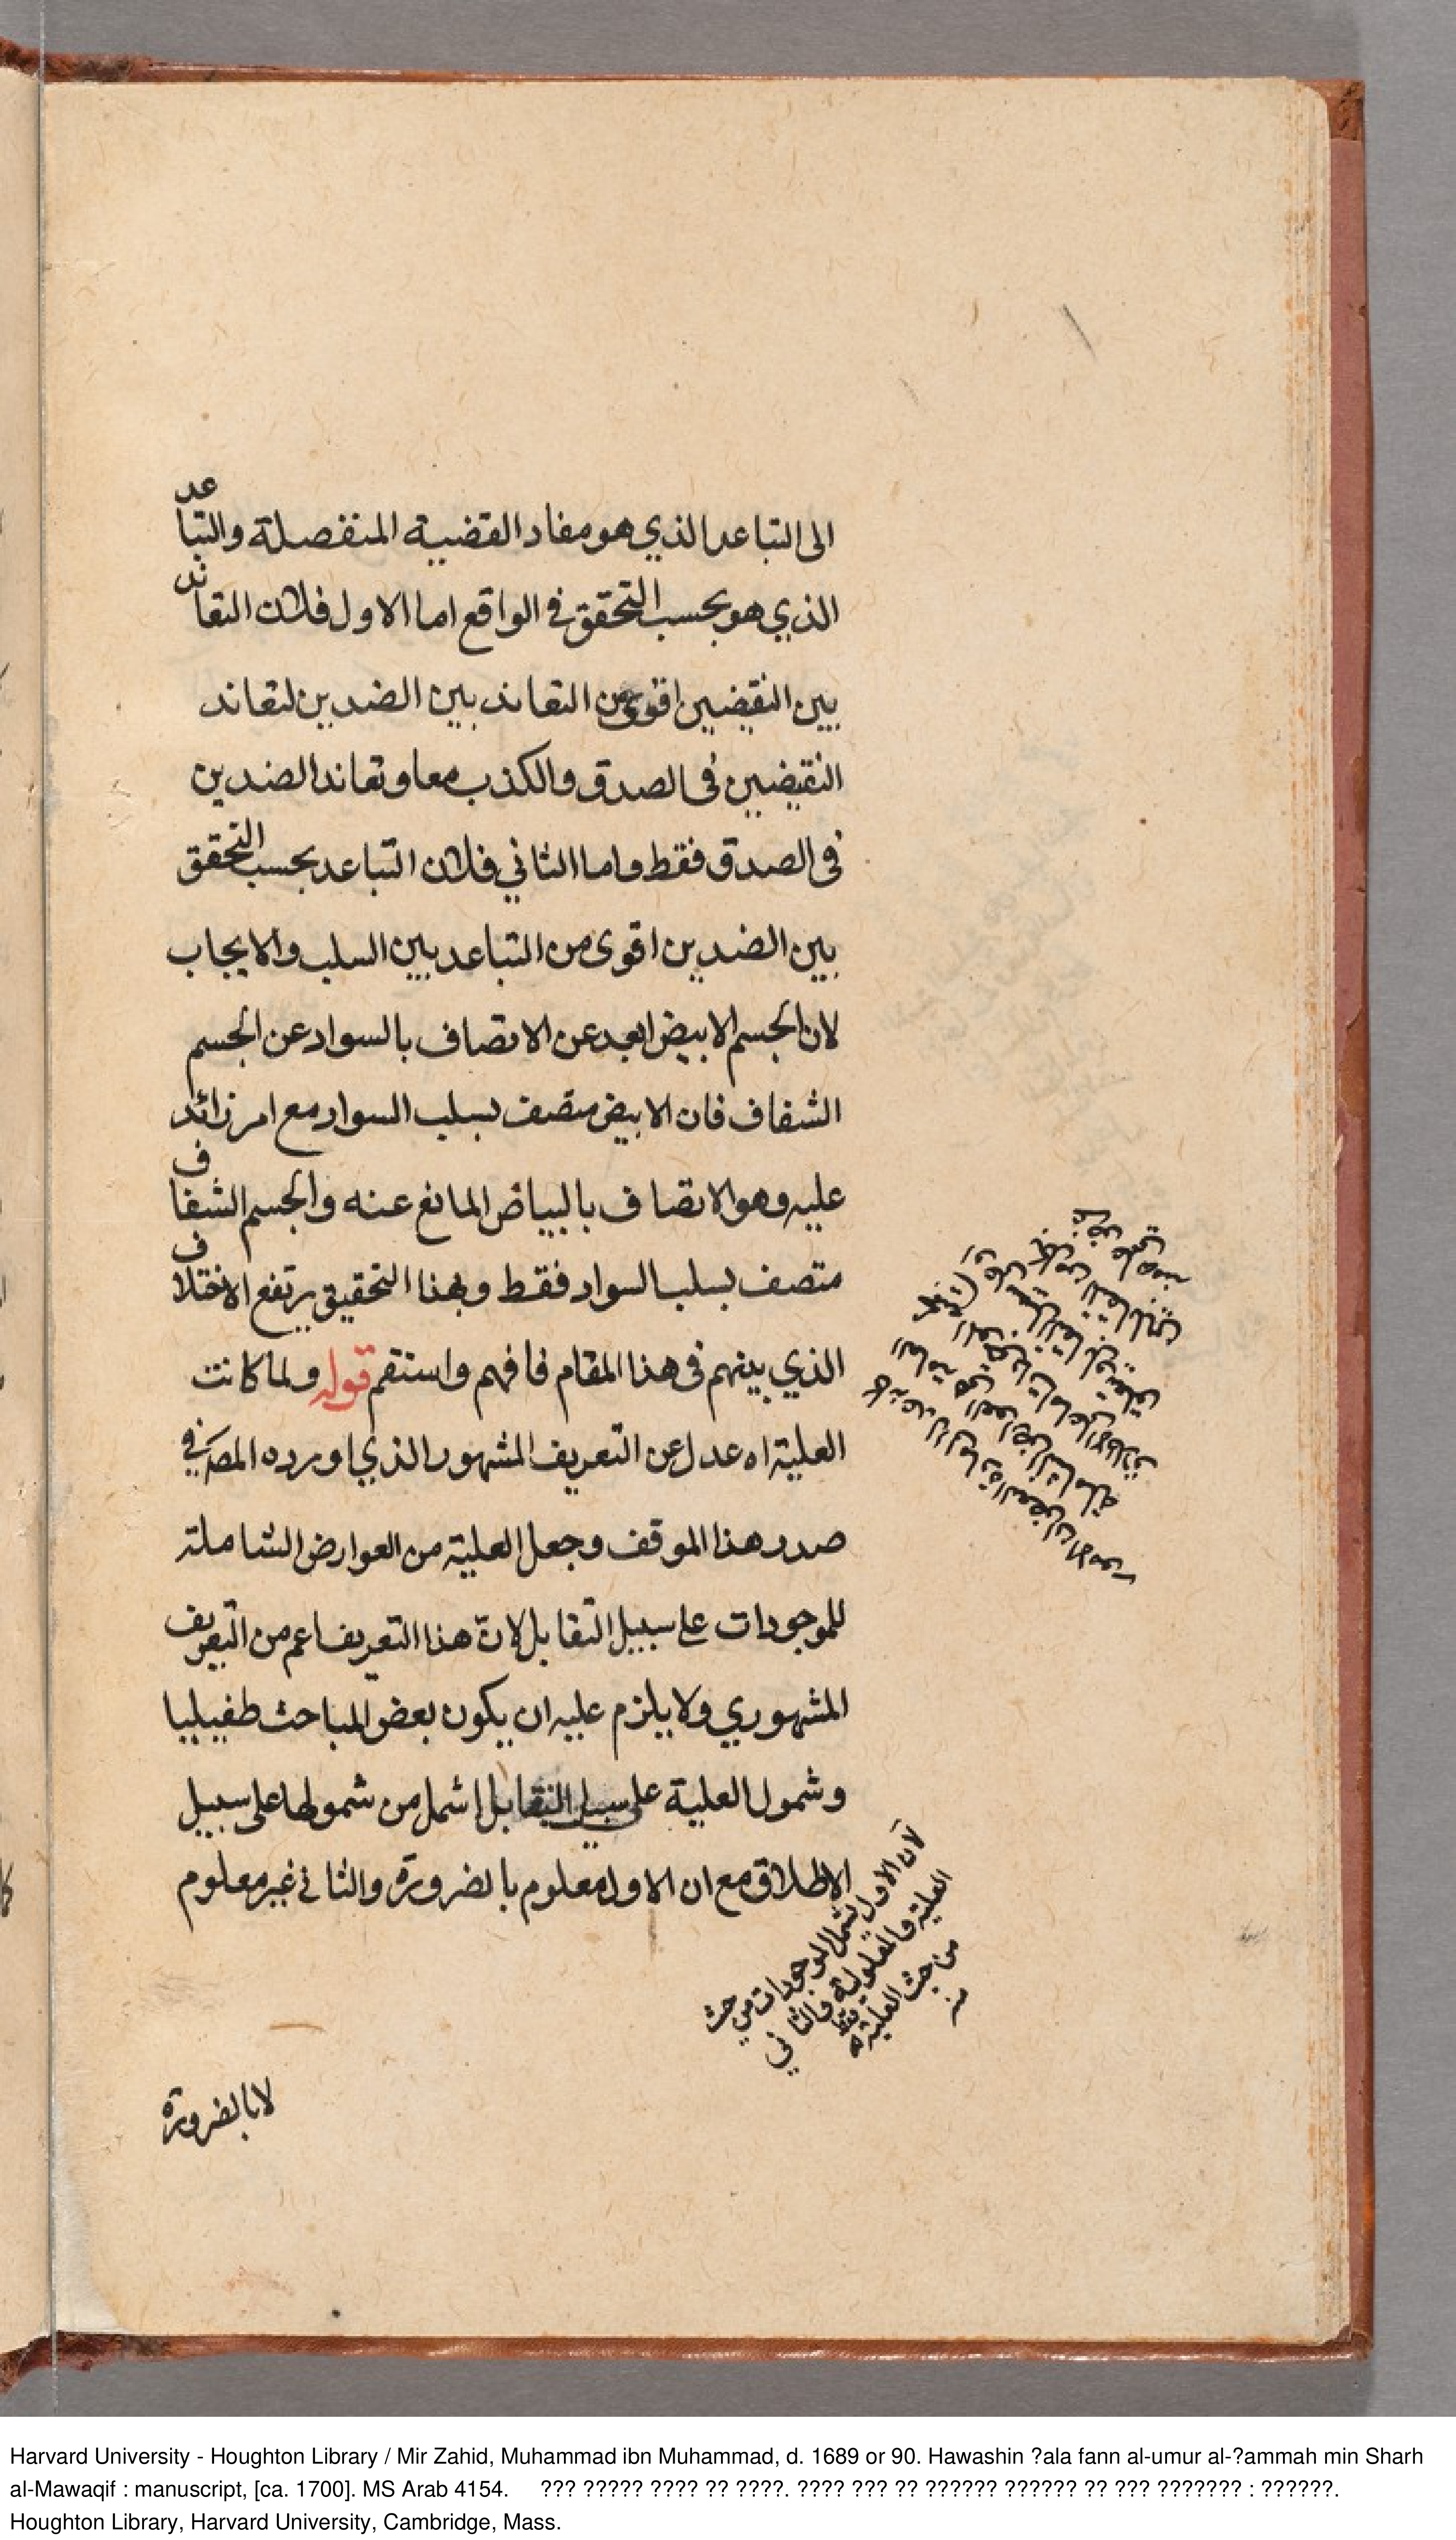 الى التباعد الذي هو مفاد القضية المنفصلة والتباعد
الذي هو بحسب التحقق في الواقع اما الاول فلان التعاند
بين النقيضين اقوى من التعاند بين الضدين لتعاند
النقيضين في الصدق والكذب معا وتعاند الضدين
في الصدق فقط واما الثاني فلان التباعد بحسب التحقق
بين الضدين اقوى من التباعد بين السلب والايجاب
لان الجسم الابيض ابعد عن الاتصاف بالسواد عن الجسم
الشفاف فان الابيض متصف بسلب السواد مع امر زائد
عليه وهو الاتصاف بالبياض المانع عنه والجسم الشفاف
متصف بسلب السواد فقط وبهذا التحقيق يرتفع الاختلاف
الذي بينهم في هذا المقام فافهم واستقم قوله ولما كانت
العلية اه عدل عن التعريف المشهور الذي اورده المصـ في
صدر هذا الموقف وجعل العلية من العوارض الشاملة
للموجودات على سبيل التقابل لان هذا التعريف اعم من التعريف
المشهوري ولا يلزم عليه ان يكون بعض المباحث طفيليا
وشمول العلية على سبيل التقابل اشمل من شمولها على سبيل
الاطلاق مع ان الاول معلوم بالضرورة والثاني غير معلوم
لان الاول يشمل الموجودات من حيث
العلية والمعلولية والثاني
من حيث العلية فقط
منه
لا بالضرورة
Harvard University - Houghton Library / Mir Zahid, Muhammad ibn Muhammad, d. 1689 or 90. Hawashin ?ala fann al-umur al-?ammah min Sharh
al-Mawaqif : manuscript, [ca. 1700]. MS Arab 4154. ??? ????? ???? ?? ????. ???? ??? ?? ?????? ?????? ?? ??? ??????? : ??????.
Houghton Library, Harvard University, Cambridge, Mass.